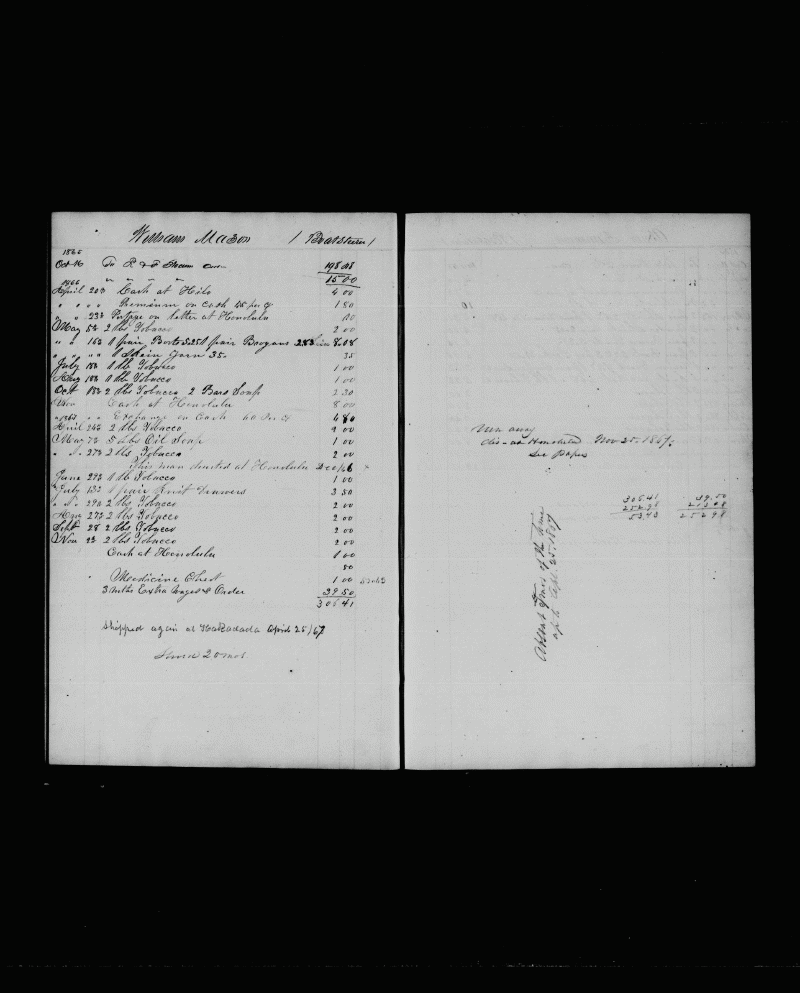 William Mason / Boatsteer /
1865
Oct 16 To 198 08
" " " " 15 00
1866
April 20th Cash at Hilo 4 00
" " " " Premium on Cash 45 per ct 1 80
" " 23d Postage on letter at Honolulu 10
May 5th 2 lbs Tobacco 2 00
" " 16th 1 pair Boots 5.25 1 pair Brogans 2.83 8 08
" " " " 1 Skein Yarn 35 35
July 18th 1 lb Tobacco 1 00
Aug 18th 1 lb Tobacco 1 00
Oct 18th 2 lbs Tobacco 2 Bars Soap 2 30
Nov Cash at Honolulu 8 00
" " Exchange on Cash 60 per ct 4 80
1867
April 24th 2 lbs Tobacco 2 00
May 7th 5 lbs Oil Soap 1 00
" " 27th 2 lbs Tobacco 2 00
This man deserted at Honolulu
June 29th 1 lb Tobacco 1 00
July 13th 1 pair Knit Drawers 3 50
" " 29th 2 lbs Tobacco 2 00
Aug 27th 2 lbs Tobacco 2 00
Sept 28 2 lbs Tobacco 2 00
Nov 23 2 lbs Tobacco 2 00
Cash at Honolulu 1 00
50
Medicine Chest 1 00
3 mths Extra wages & Order 39.50
305 41
Shipped again at April 25/67
20 mos
Run away
dis - at Honolulu Nov 25 - 1867
See papers
305.41 39.50
252.98 213.48
52.43 252.98
Absent from of the time
up to Apl 25 - 1867